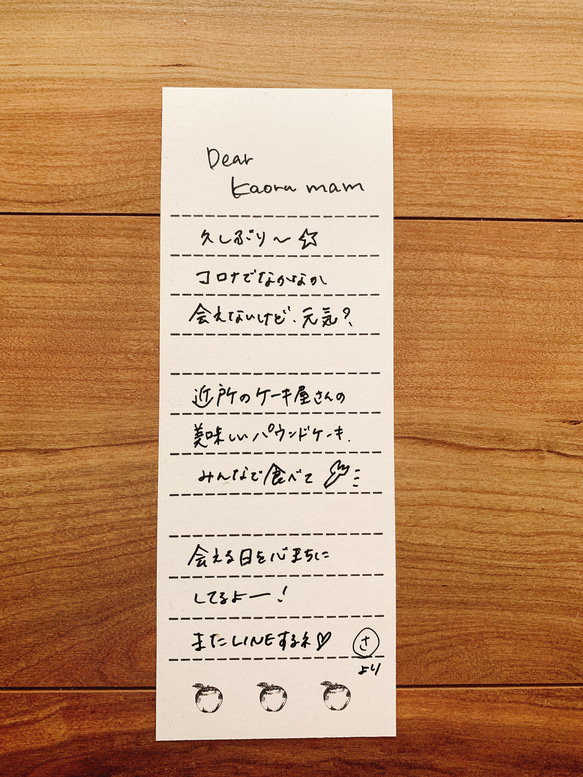 Dear
Kaoru mam
久しぶり〜☆
コロナでなかなか
会えないけど、元気?
近所のケーキ屋さんの
美味しいパウンドケーキ、
みんなで食べて
会える日を心まちに
してるよー!
またLINEするネ♡
さ
より